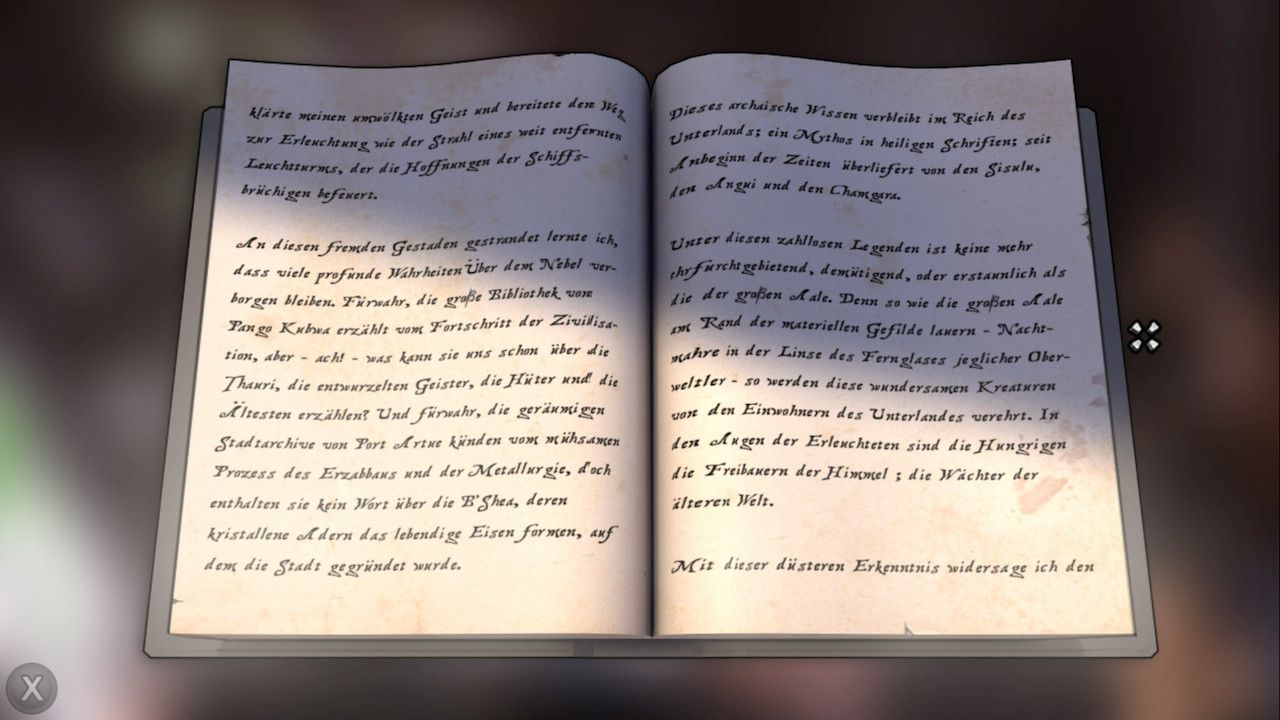 klärte meinen umwölkten Geist und bereitete dem Weg
zur Erleuchtung wie der Strahl eines weit entfernten
Leuchtturms, der die Hoffnungen der Schiffs-
brüchigen befeuert.
An diesen fremden Gestaden gestrandet lernte ich,
dass viele profunde Wahrheiten Über dem Nebel ver-
borgen bleiben. Fürwahr, die große Bibliothek von
Pango Kubwa erzählt vom Fortschritt der Zivilisa-
tion, aber - ach! - was kann sie uns schon über die
Thauri, die entwurzelten Geister, die Hüter und die
Ältesten erzählen? Und fürwahr, die geräumigen
Stadtarchive von Port Artue künden vom mühsamen
Prozess des Erzabbaus und der Metallurgie, doch
enthalten sie kein Wort über die B'Shea, deren
kristallene Adern das lebendige Eisen formen, auf
dem die Stadt gegründet wurde.
Dieses archaische Wissen verbleibt im Reich des
Unterlands; ein Mythos in heiligen Schriften; seit
Anbeginn der Zeiten überliefert von den Sisulu,
den Angui und den Chamgara.
Unter diesen zahllosen Legenden ist keine mehr
ehrfurchtgebietend, demütigend, oder erstaunlich als
die der großen Aale. Denn so wie die großen Aale
am Rand der materiellen Gefilde lauern - Nacht-
mahre in der Linse des Fernglases jeglicher Ober-
weltler - so werden diese wundersamen Kreaturen
von den Einwohnern des Unterlandes verehrt. In
den Augen der Erleuchteten sind die Hungrigen
die Freibauern der Himmel ; die Wächter der
älteren Welt.
Mit dieser düsteren Erkenntnis widersage ich den
X